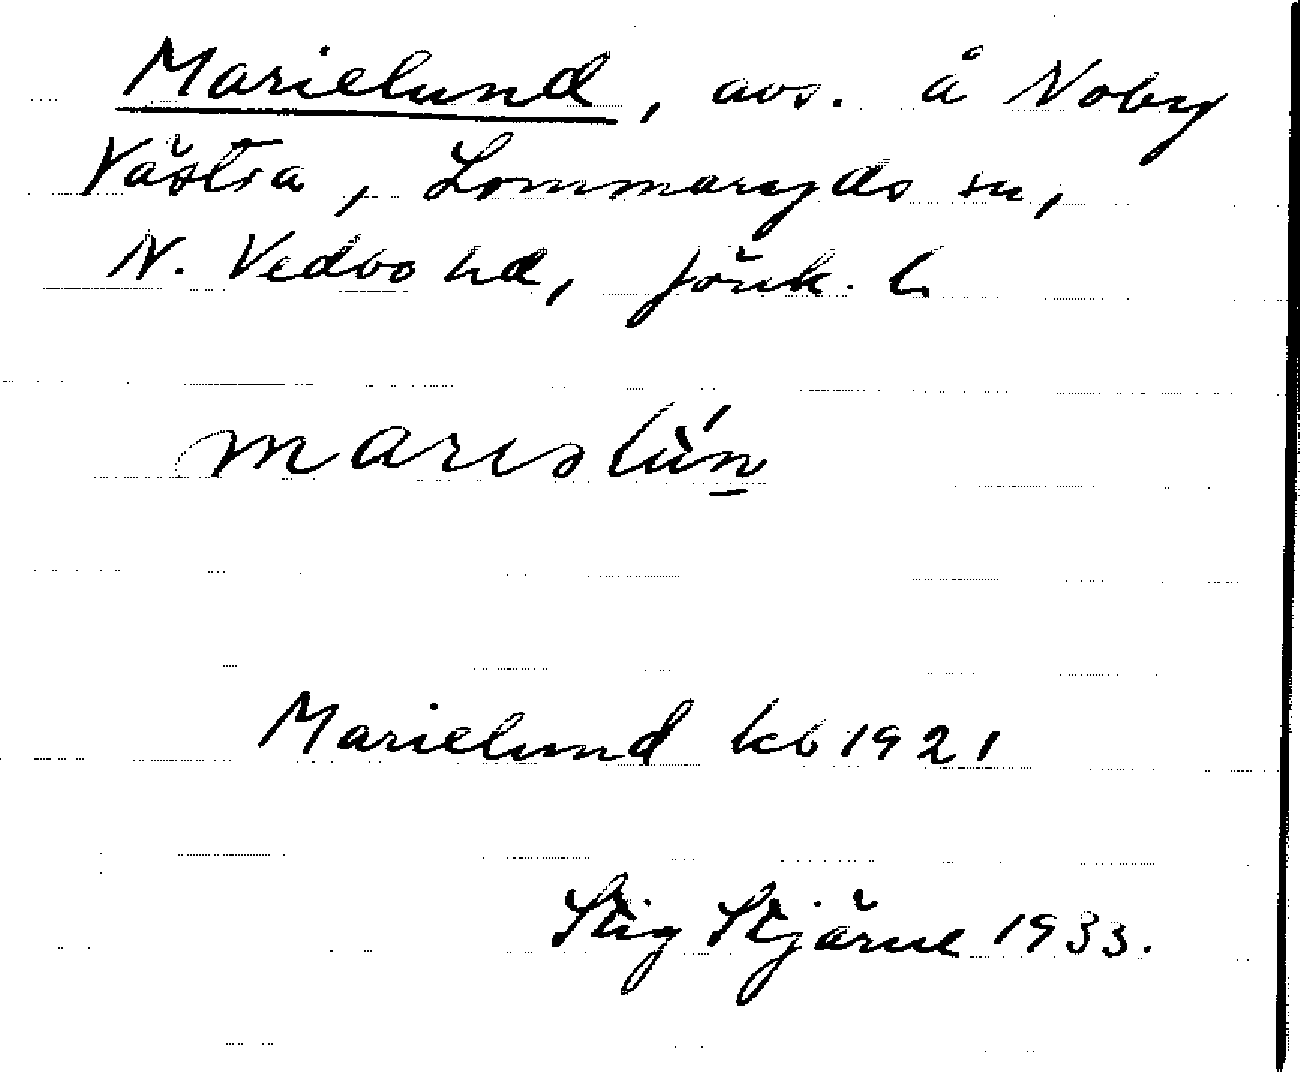 Marielund, avs. å Noby
Västra, Lommaryds sn,
N. Vedbo hd, Jönk. l.
Marielund kb 1921
Stig Stjärne 1933.